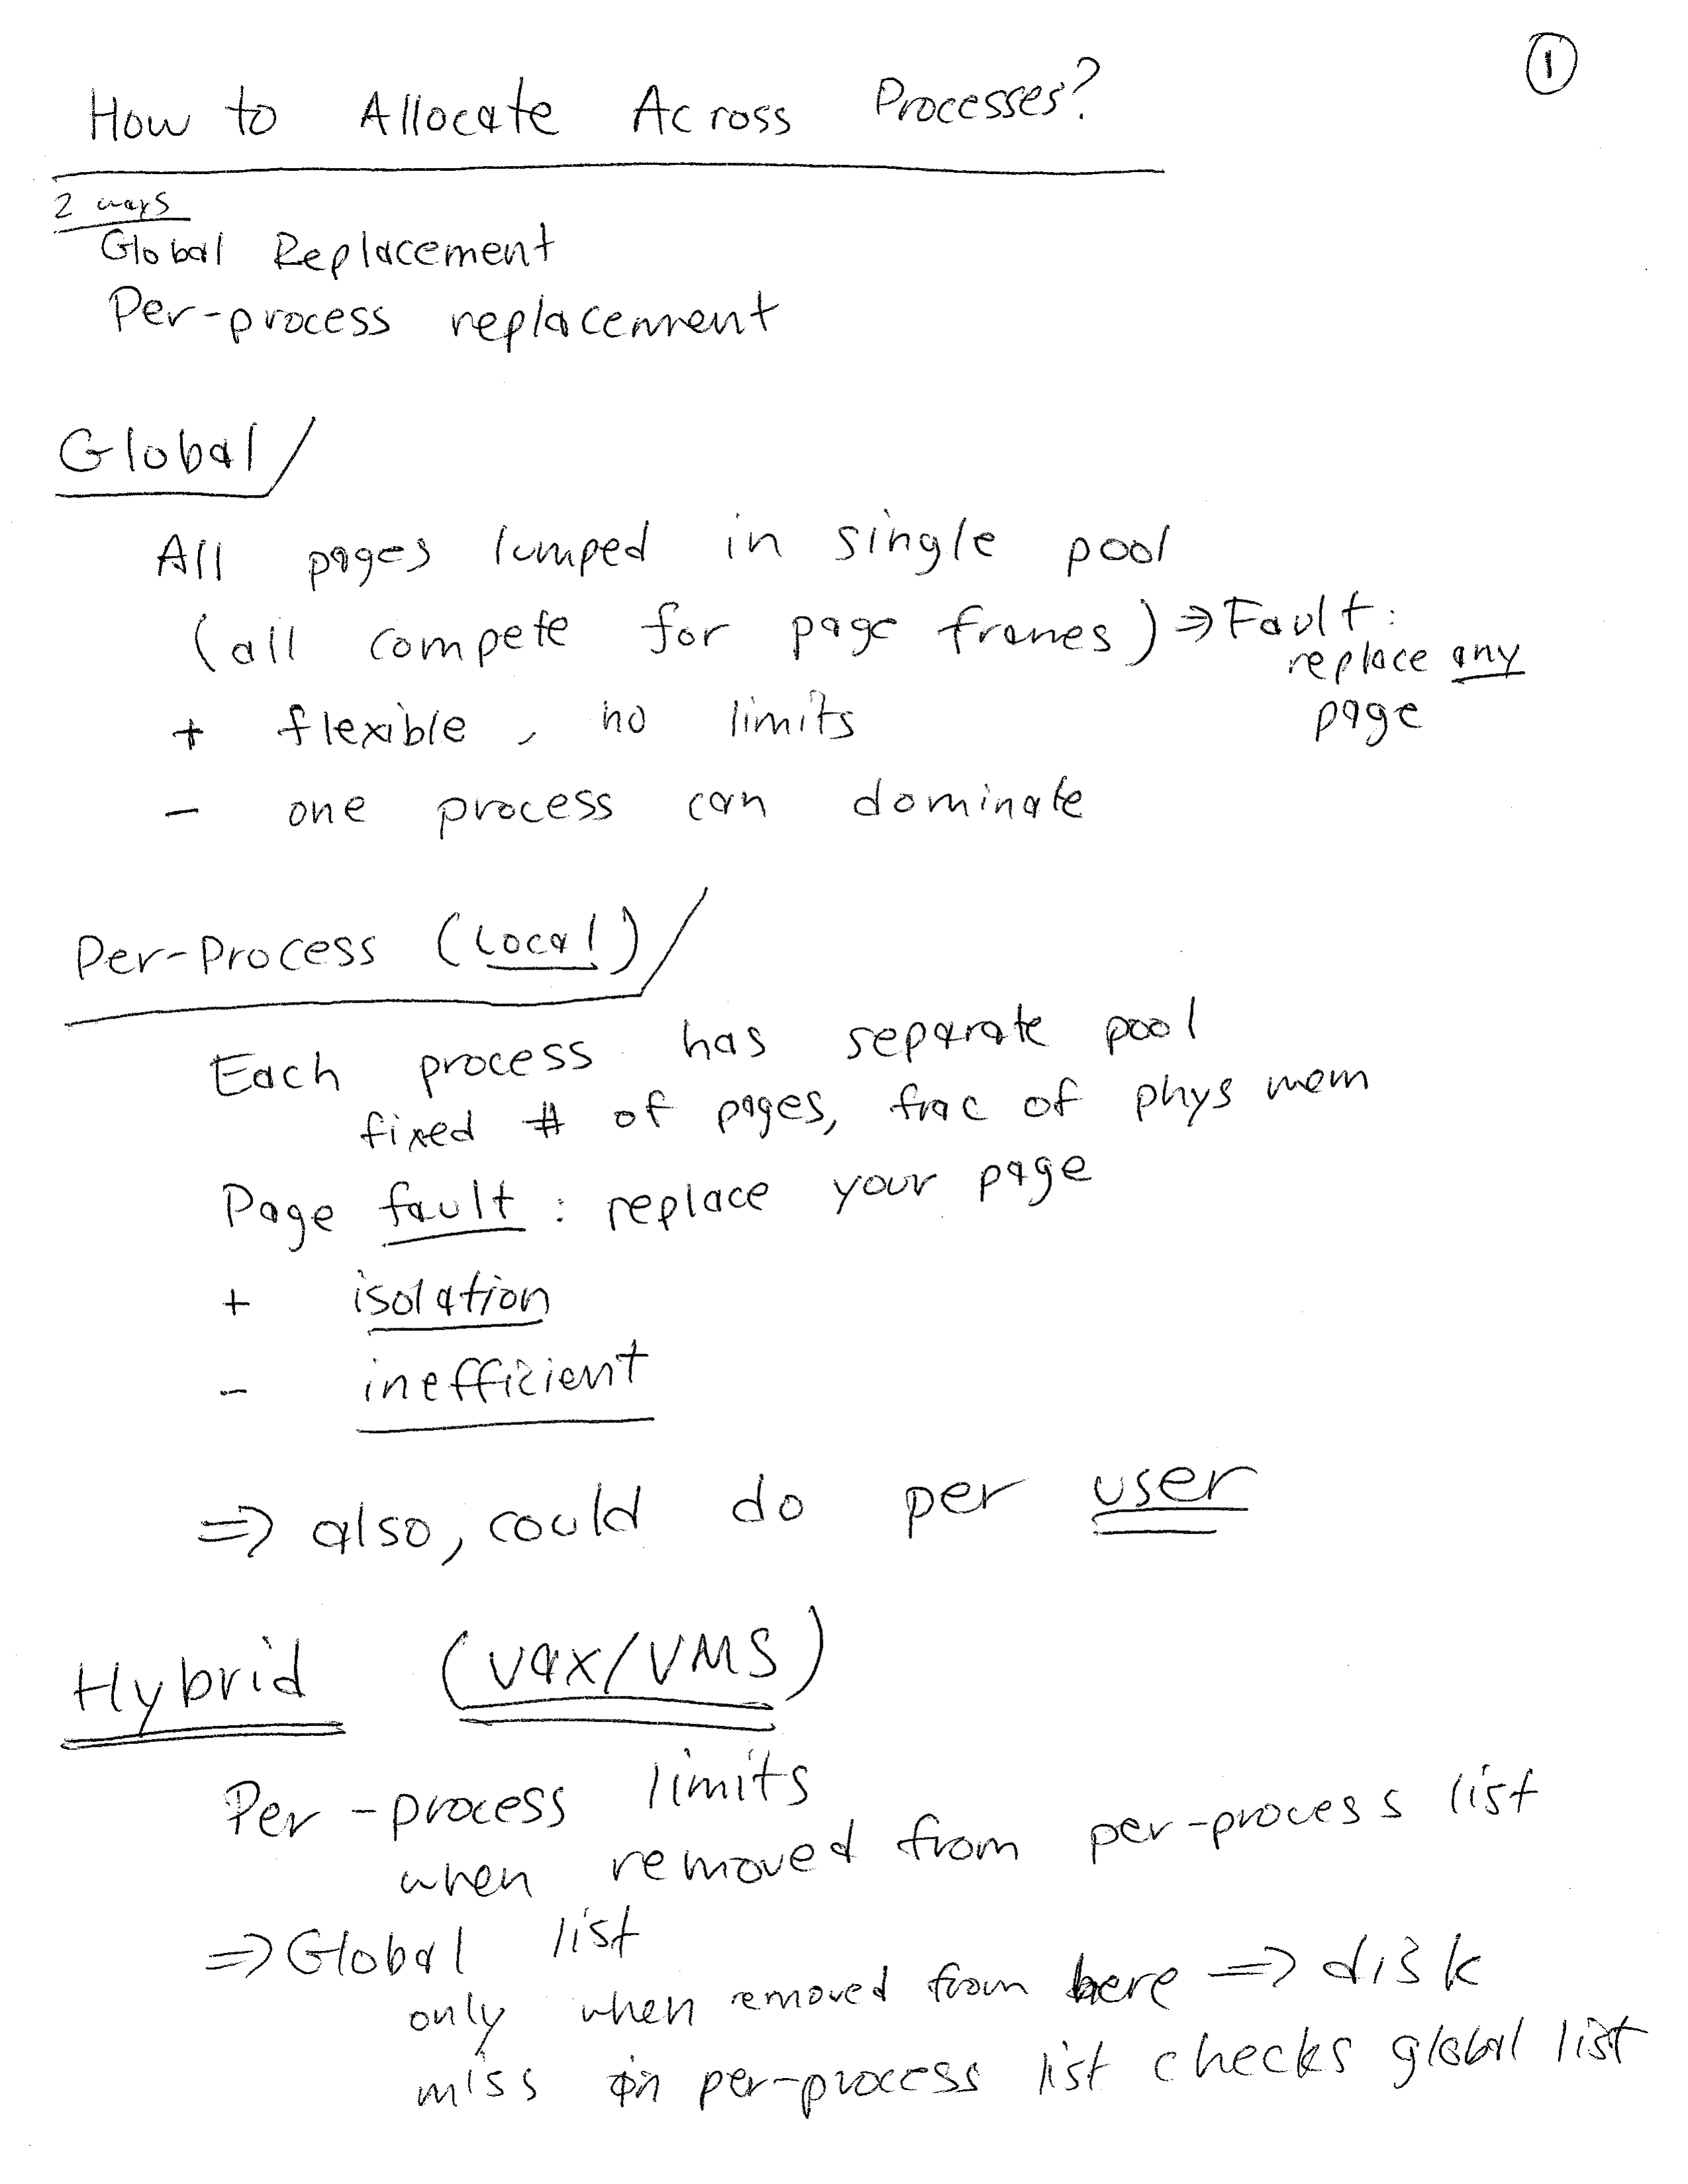 ①
How to Allocate Across Processes?
2 ways
Global Replacement
Per-process replacement
Global
All pages lumped in single pool
(all compete for page frames) ⇒ Fault:
replace any
page
+ flexible, no limits
- one process can dominate
Per-Process (Local)
Each process has separate pool
fixed # of pages, frac of phys mem
Page fault: replace your page
+ isolation
- inefficient
⇒ also, could do per user
Hybrid (Vax/VMS)
Per-process limits
when removed from per-process list
⇒ Global list
only when removed from here ⇒ disk
miss on per-process list checks global list